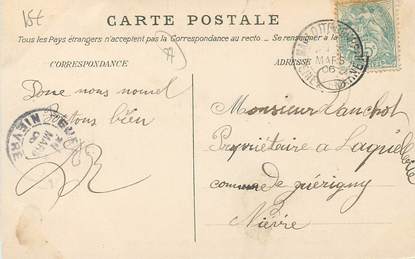 15t
CARTE POSTALE
Tous les Pays étrangers n'acceptent pas la Correspondance au recto. Se renseigner à la
CORRESPONDANCE
ADRESSE
MARS
06
Donne nous nouvel
Portons bien
NIEVRE
MARS
06
Monsieur Vanchot
Propriétaire a
commune de guérigny
Nièvre